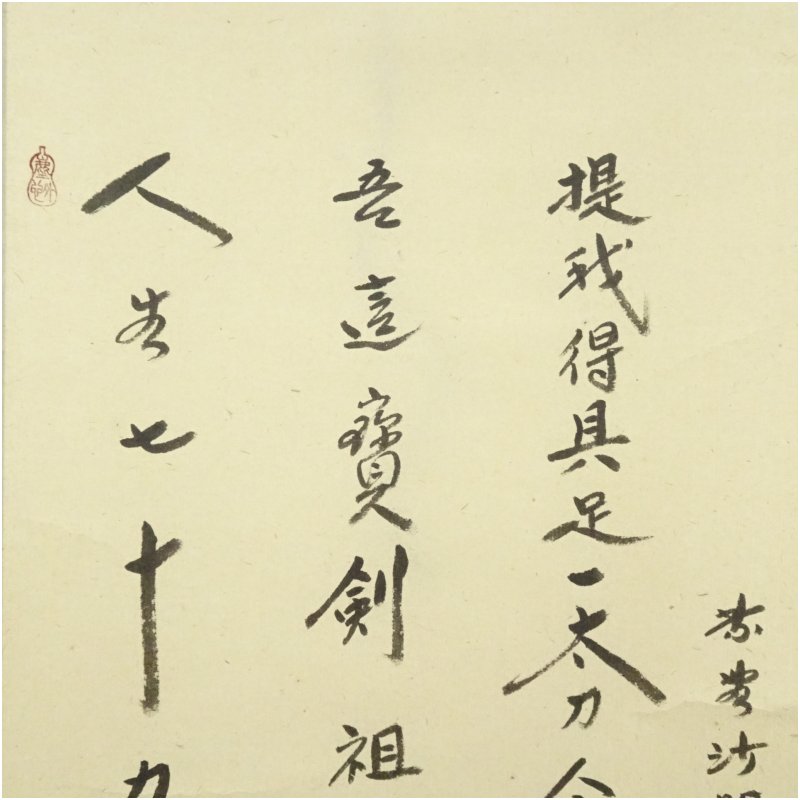 人生七十力
吾這寶劍祖
提我得具足一太刀今
沙門